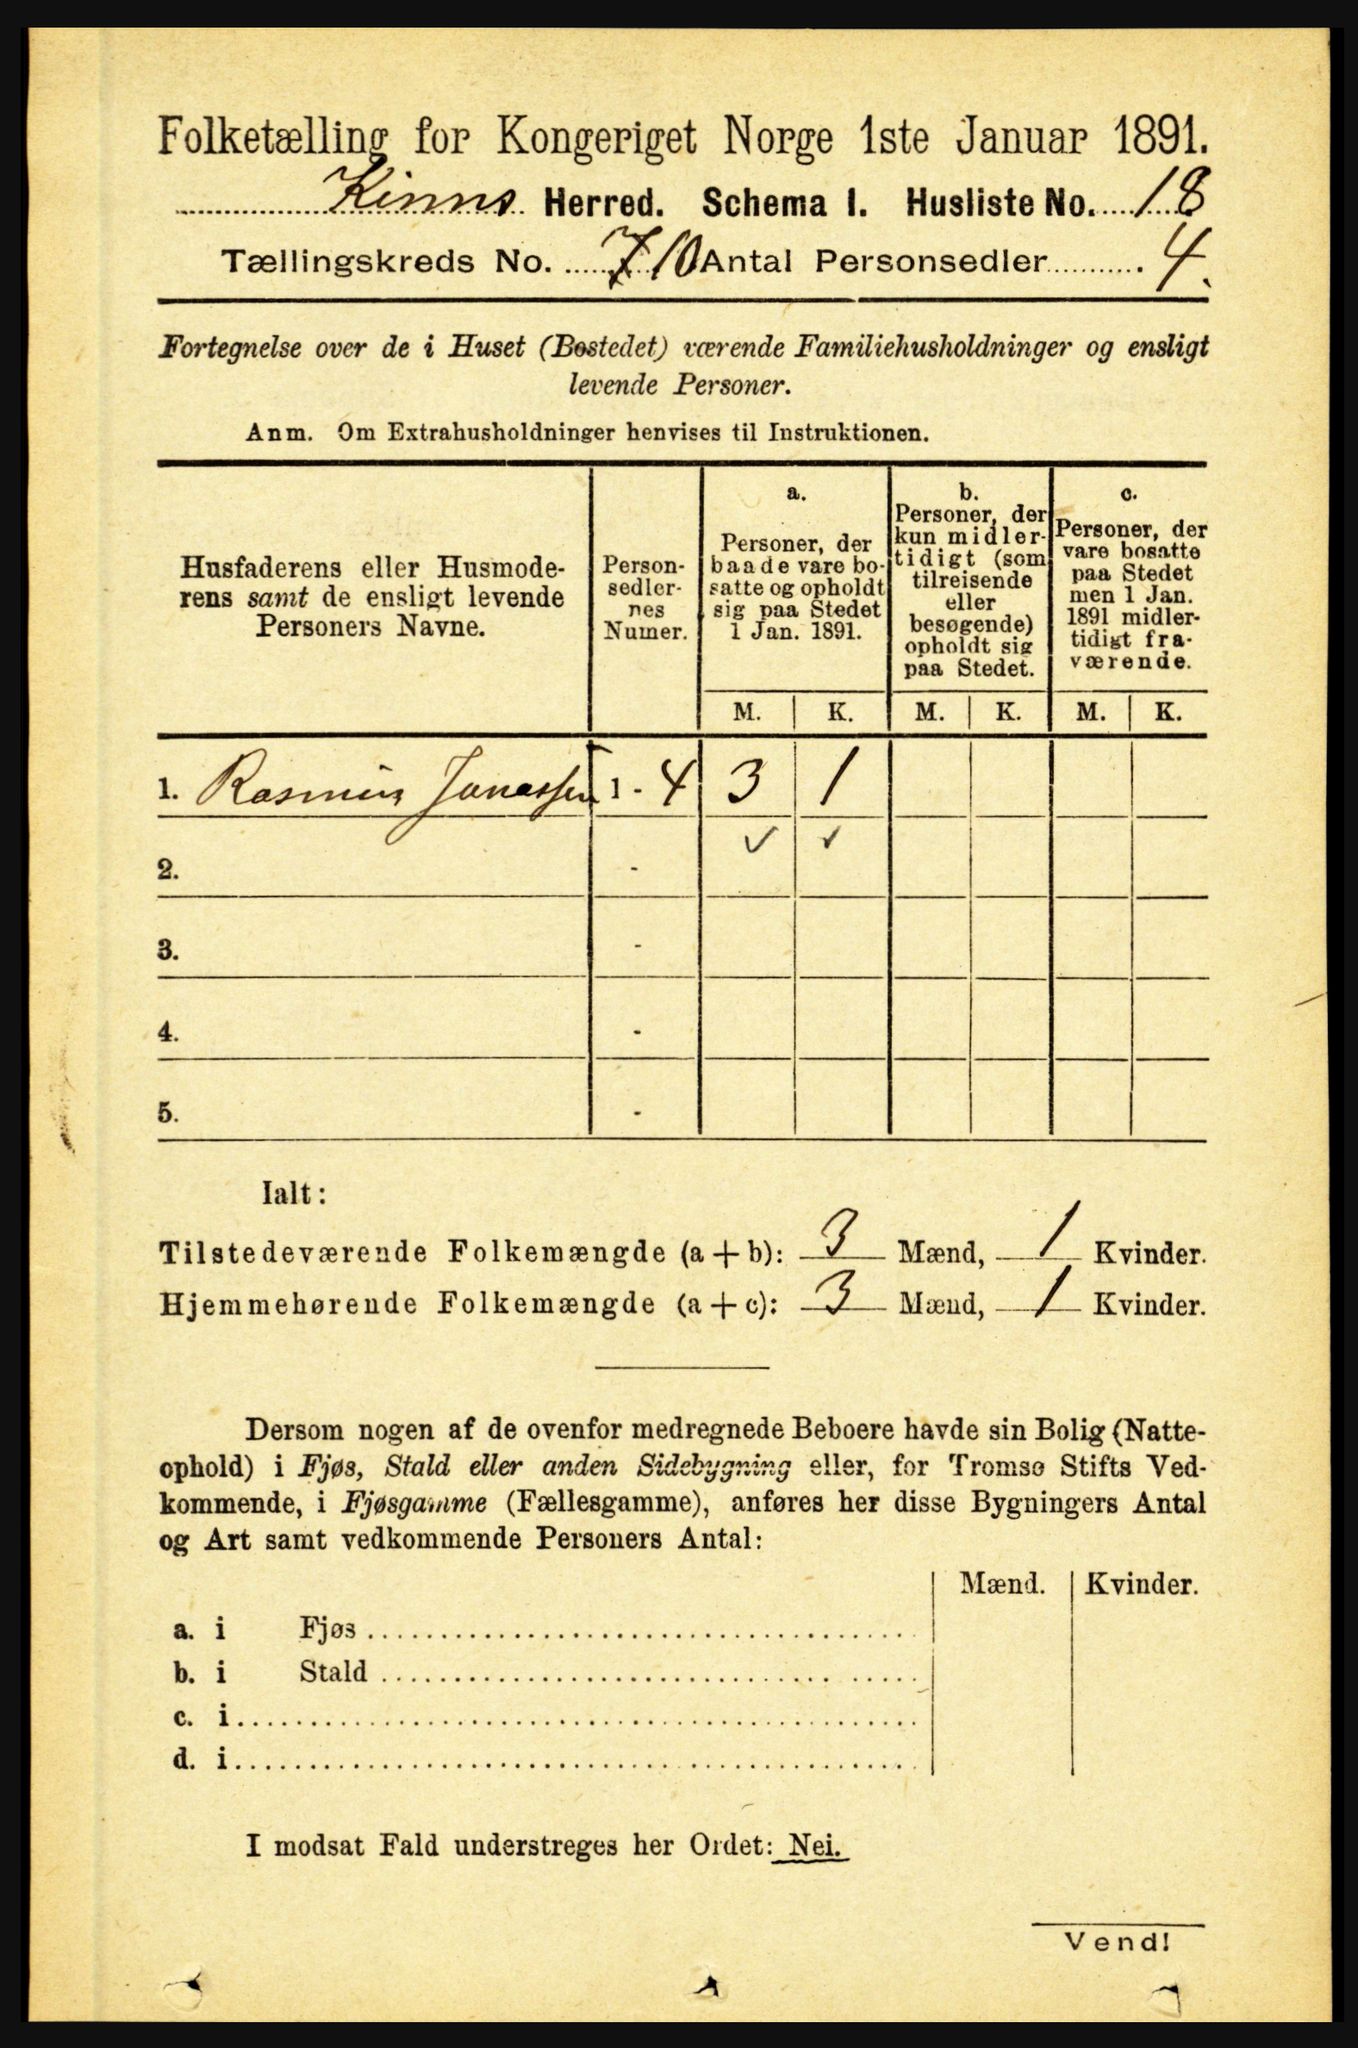 Folketælling for Kongeriget Norge 1ste Januar 1891.
Kinns Herred. Schema I. Husliste No. 18
Tællingskreds No. 710 Antal Personsedler 4.
Fortegnelse over de i Huset (Bostedet) værende Familiehusholdninger og ensligt
levende Personer.
Anm. Om Extrahusholdninger henvises til Instruktionen.
Husfaderens eller Husmode-
rens samt de ensligt levende
Personers Navne.
Person-
sedler-
nes
Numer.
a.
Personer, der
baade vare bo-
satte og opholdt
sig paa Stedet
1 Jan. 1891.
b.
Personer, der
kun midler-
tidigt (som
tilreisende
eller
besøgende)
opholdt sig
paa Stedet.
c.
Personer, der
vare bosatte
paa Stedet
men 1 Jan.
1891 midler-
tidigt fra-
værende.
M. K. M. K. M. K.
1. Rasmus Jonassen 1 - 4 3 1
2. -
3. -
4. -
5. -
Ialt:
Tilstedeværende Folkemængde (a + b): 3 Mænd, 1 Kvinder.
Hjemmehørende Folkemængde (a + c): 3 Mænd, 1 Kvinder.
Dersom nogen af de ovenfor medregnede Beboere havde sin Bolig (Natte-
ophold) i Fjøs, Stald eller anden Sidebygning eller, for Tromsø Stifts Ved-
kommende, i Fjøsgamme (Fællesgamme), anføres her disse Bygningers Antal
og Art samt vedkommende Personers Antal:
Mænd. Kvinder.
a. i Fjøs
b. i Stald
c. i
d. i
I modsat Fald understreges her Ordet: Nei.
Vend!